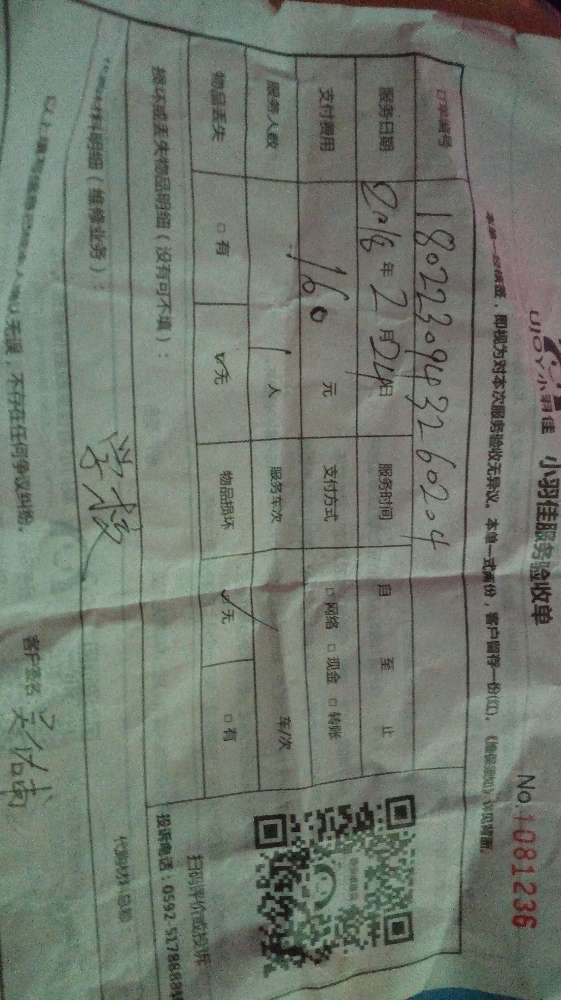 UJOY小羽佳 小羽佳服务验收单 No.1081236
即视为对本次服务验收无异议。本单一式两份，客户留存一份(红)。
订单编号 1802230943260204
服务日期 2018年2月24日 服务时间 自 至 止
支付费用 160 元 支付方式 □网络 □现金 □转账
服务人数 1 人 服务车次 车/次
物品丢失 □有 ☑无 物品损坏 ☑无 □有
损坏或丢失物品明细（没有可不填）：
扫码评价或投诉
投诉电话：0592-5178
材料明细（维修业务）：
学校
无误，不存在任何争议纠纷。
客户签名